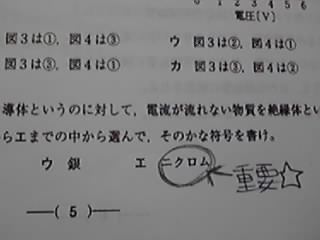 0 1 2 3 4 5 6
電圧〔V〕
図3は①, 図4は③ ウ 図3は②, 図4は①
図3は③, 図4は① カ 図3は③, 図4は②
導体というのに対して, 電流が流れない物質を絶縁体とい
らエまでの中から選んで, そのかな符号を書け。
ウ 銀 エ ニクロム ←重要☆
―( 5 )―